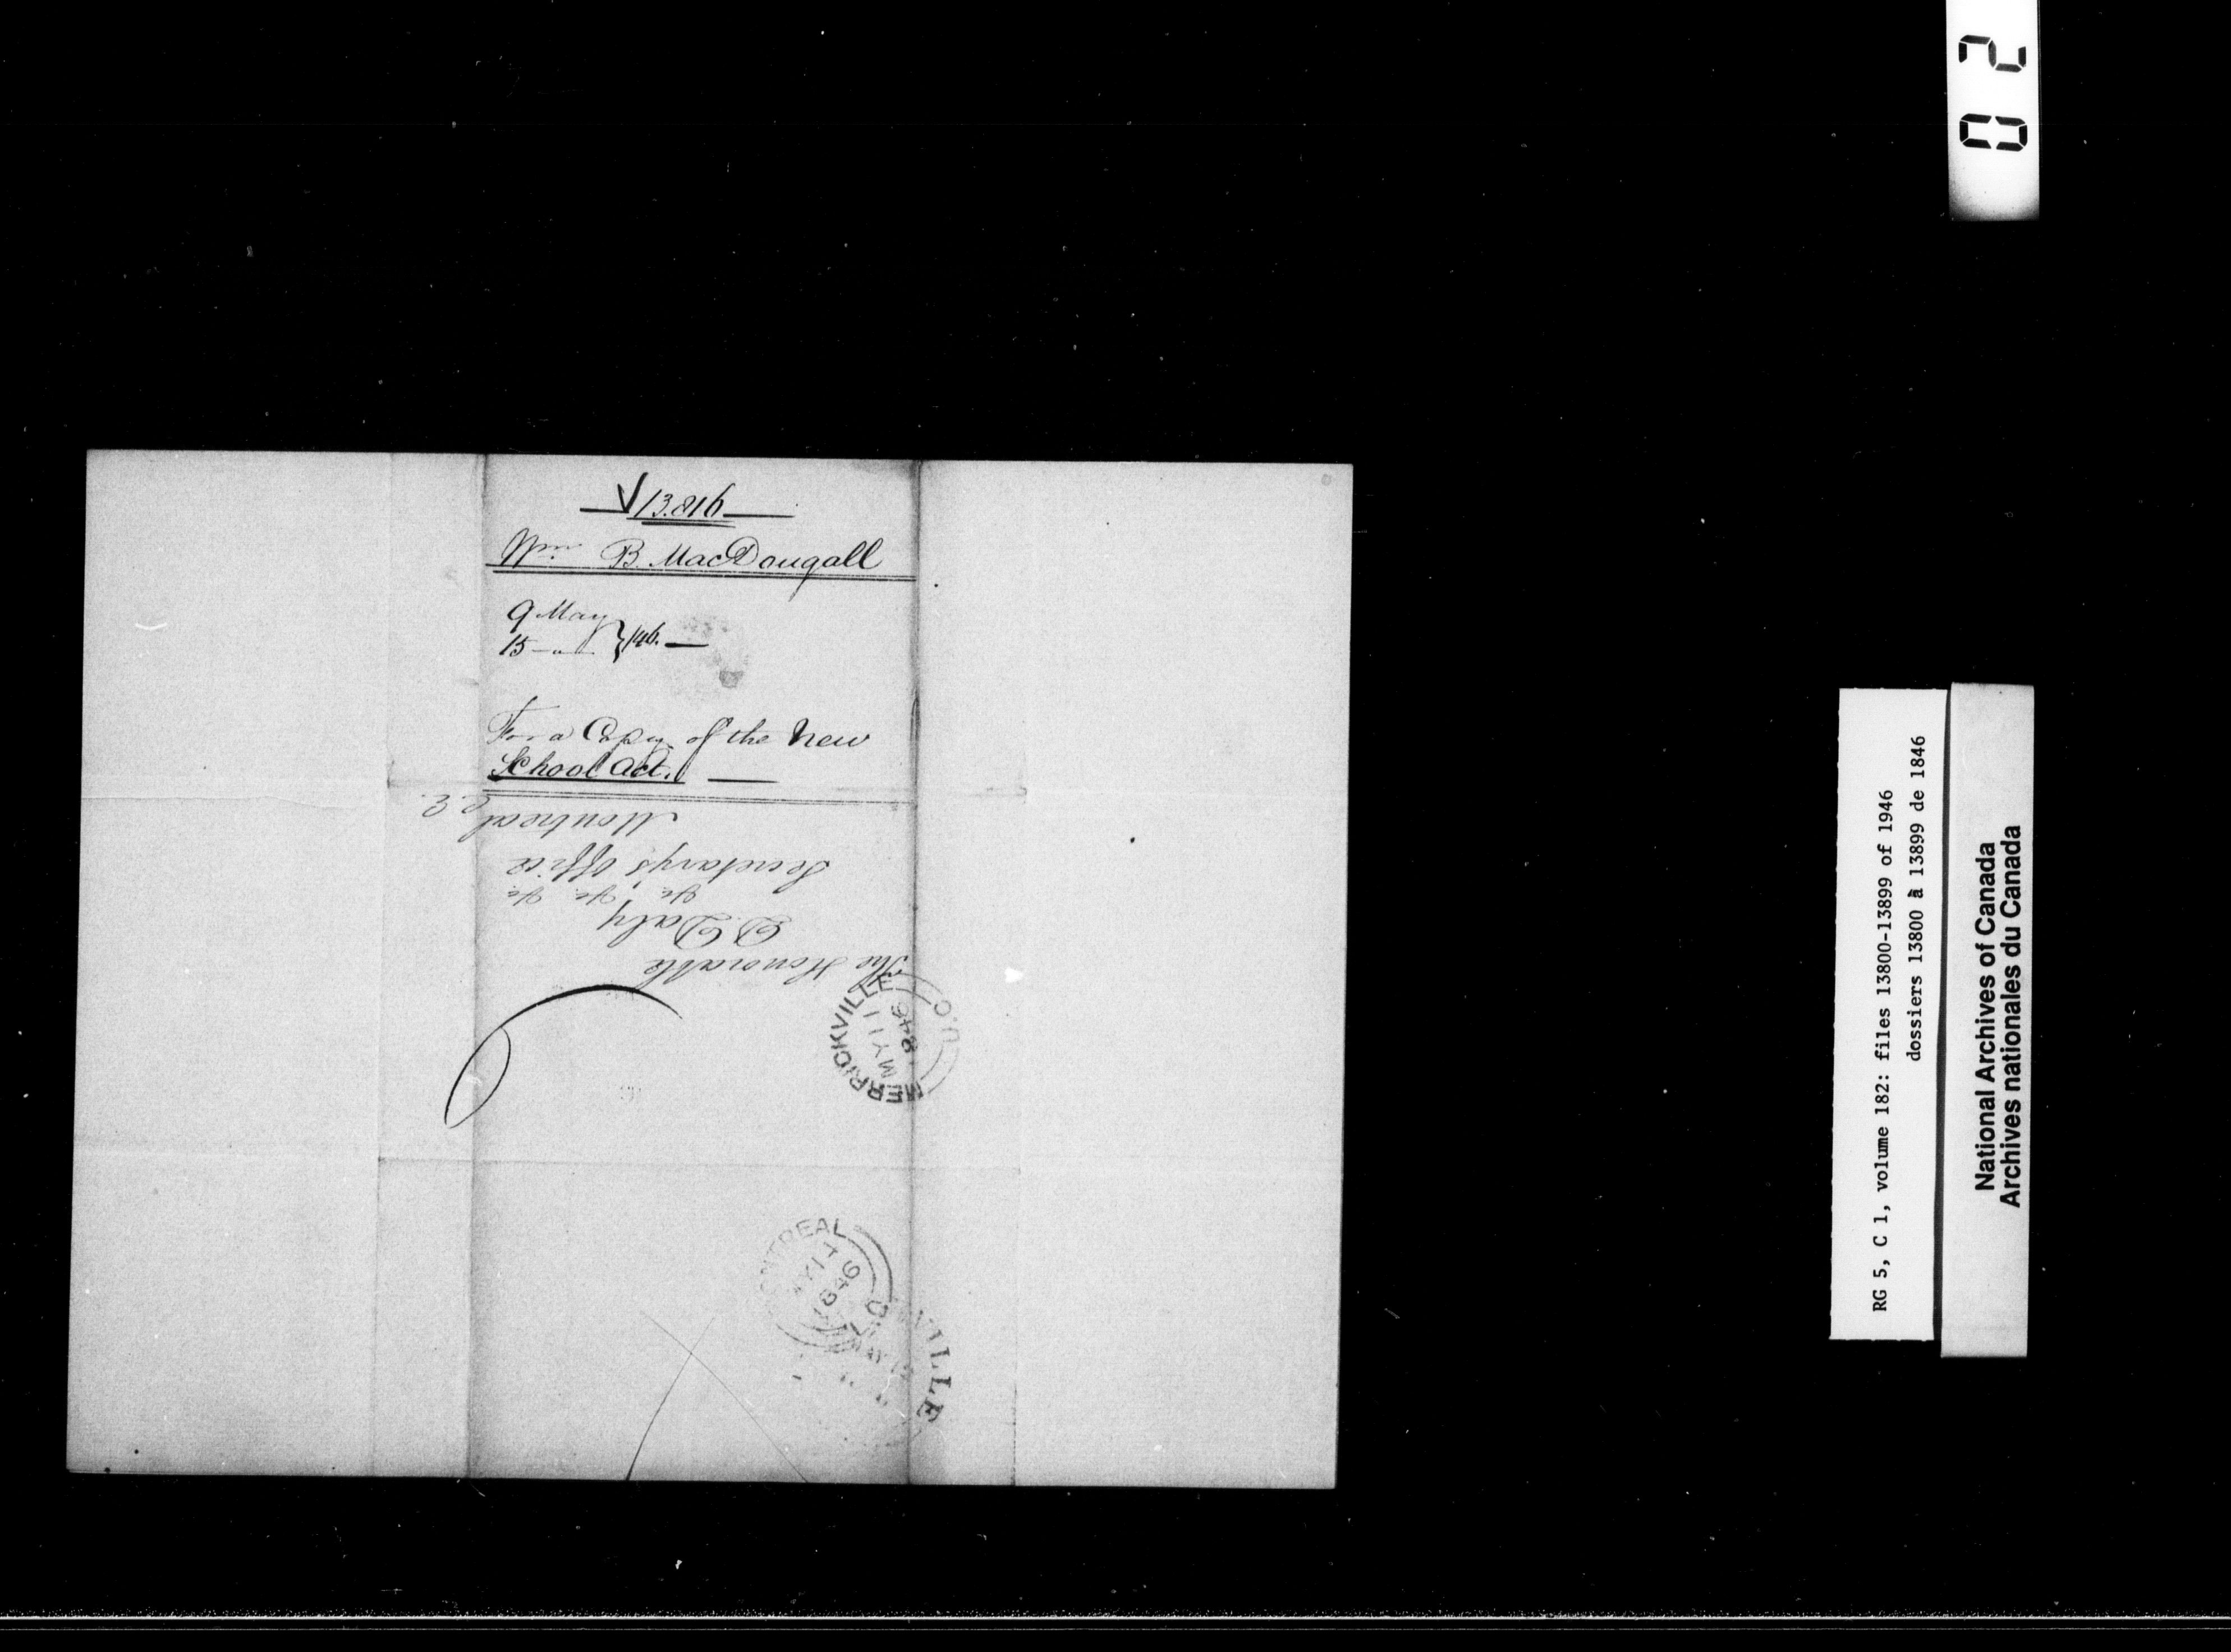 13.816
Wm B. MacDougall
9 May
15 — " — } /46. —
For a Copy of the New
School Act. —
The Honorable
D. Daly
&c. &c. &c.
Secretary's Office
Montreal
C.E.
MERRICKVILLE
MY 11
1846
U.C.
MONTREAL
MY 14
1846
VILLE
MAY
02
RG 5, C 1, volume 182: files 13800-13899 of 1946
dossiers 13800 à 13899 de 1846
National Archives of Canada
Archives nationales du Canada